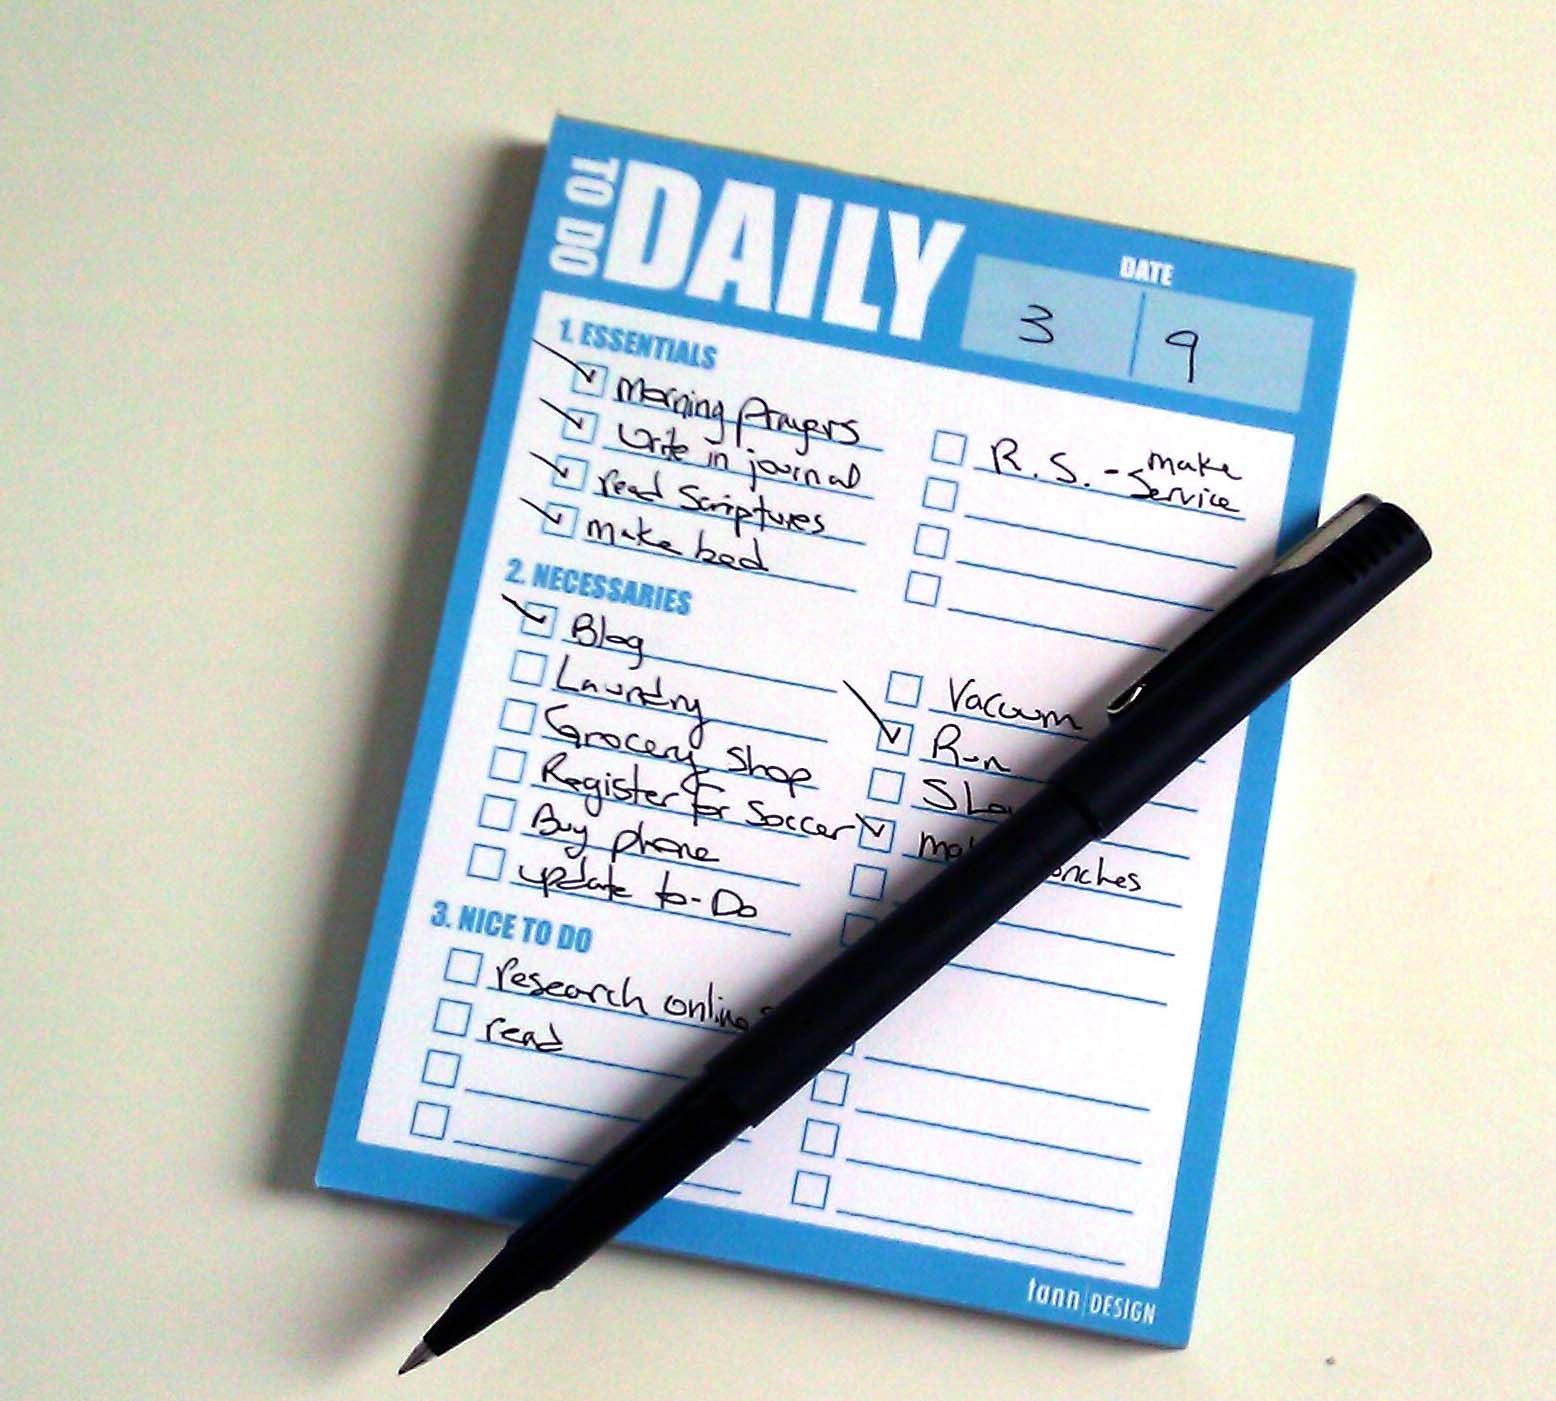 TO DO
DAILY
DATE
3 9
1. ESSENTIALS
Morning Prayers
Write in journal
read Scriptures
make bed
R.S. - make
Service
2. NECESSARIES
Blog
Laundry
Grocery Shop
Register for Soccer
Buy phone
update to-Do
Vacuum
Run
3. NICE TO DO
research online
read
tann|DESIGN